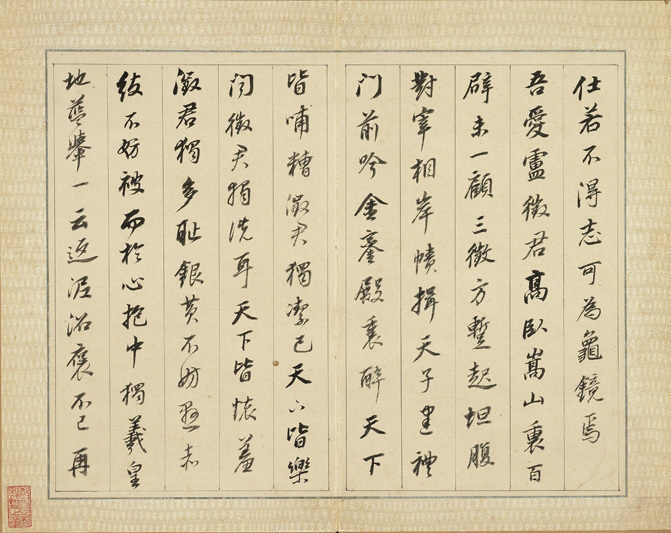 仕若不得志可為龜鏡焉
吾愛盧徵君高臥嵩山裏百
辟未一顧三徵方暫起坦腹
對宰相岸幘揖天子建禮
門前吟金鑾殿裏醉天下
皆哺糟徵君獨潔己天下皆樂
聞徵君獨洗耳天下皆懷羞
徵君獨多恥銀黃不妨懸赤
紱不妨被而於心抱中獨羲皇
地藍轝一云返泥詔褒不已再